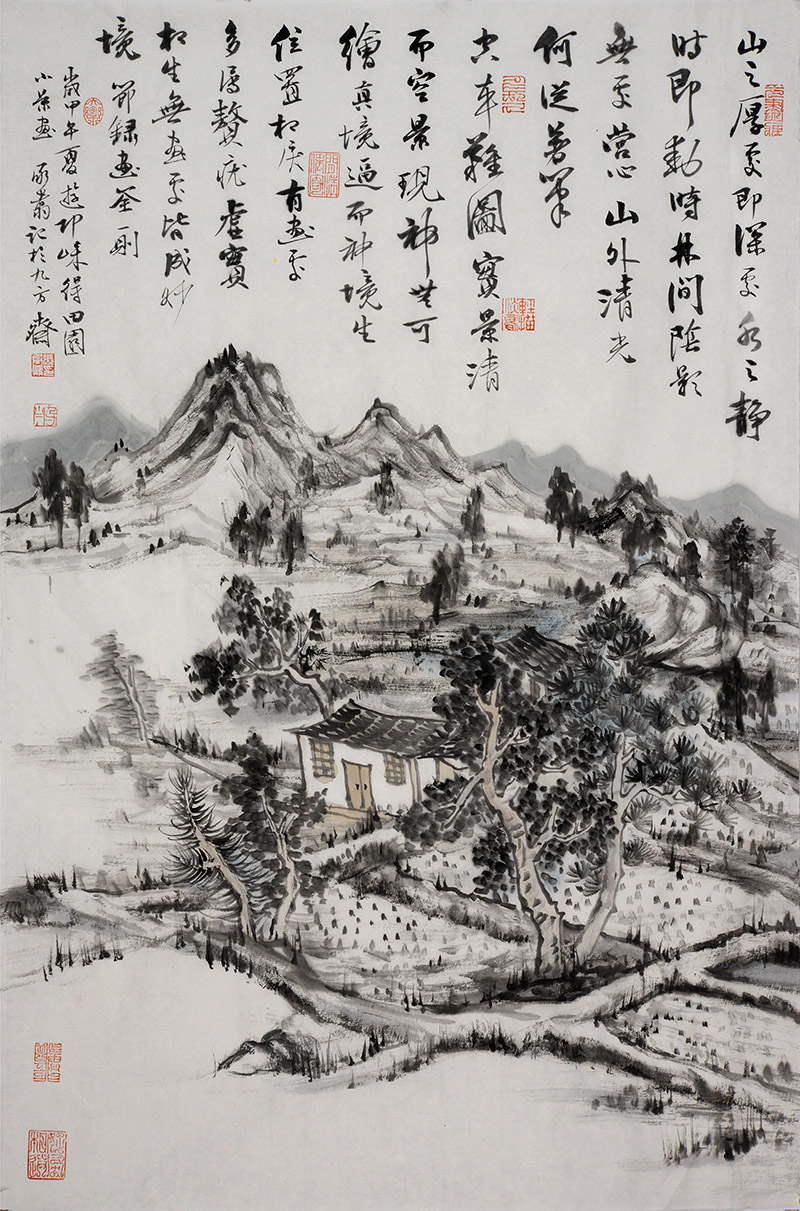 山之厚處即深處水之靜
時即動時林間陰影
無處營心山外清光
何從着筆
空本難圖實景清
而空景現神無可
繪真境逼而神境生
位置相戾有畫處
多屬贅疣虛實
相生無畫處皆成妙
境 節録畫筌一則
歲甲午夏遊邛崍得田園
小景畫 記於九方齋